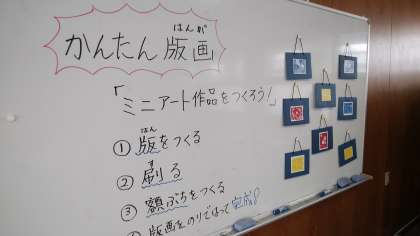 かんたん 版画
はんが
「ミニアート作品をつくろう!」
① 版をつくる
はん
② 刷る
す
③ 額ぶちをつくる
版画をのりではって完成!